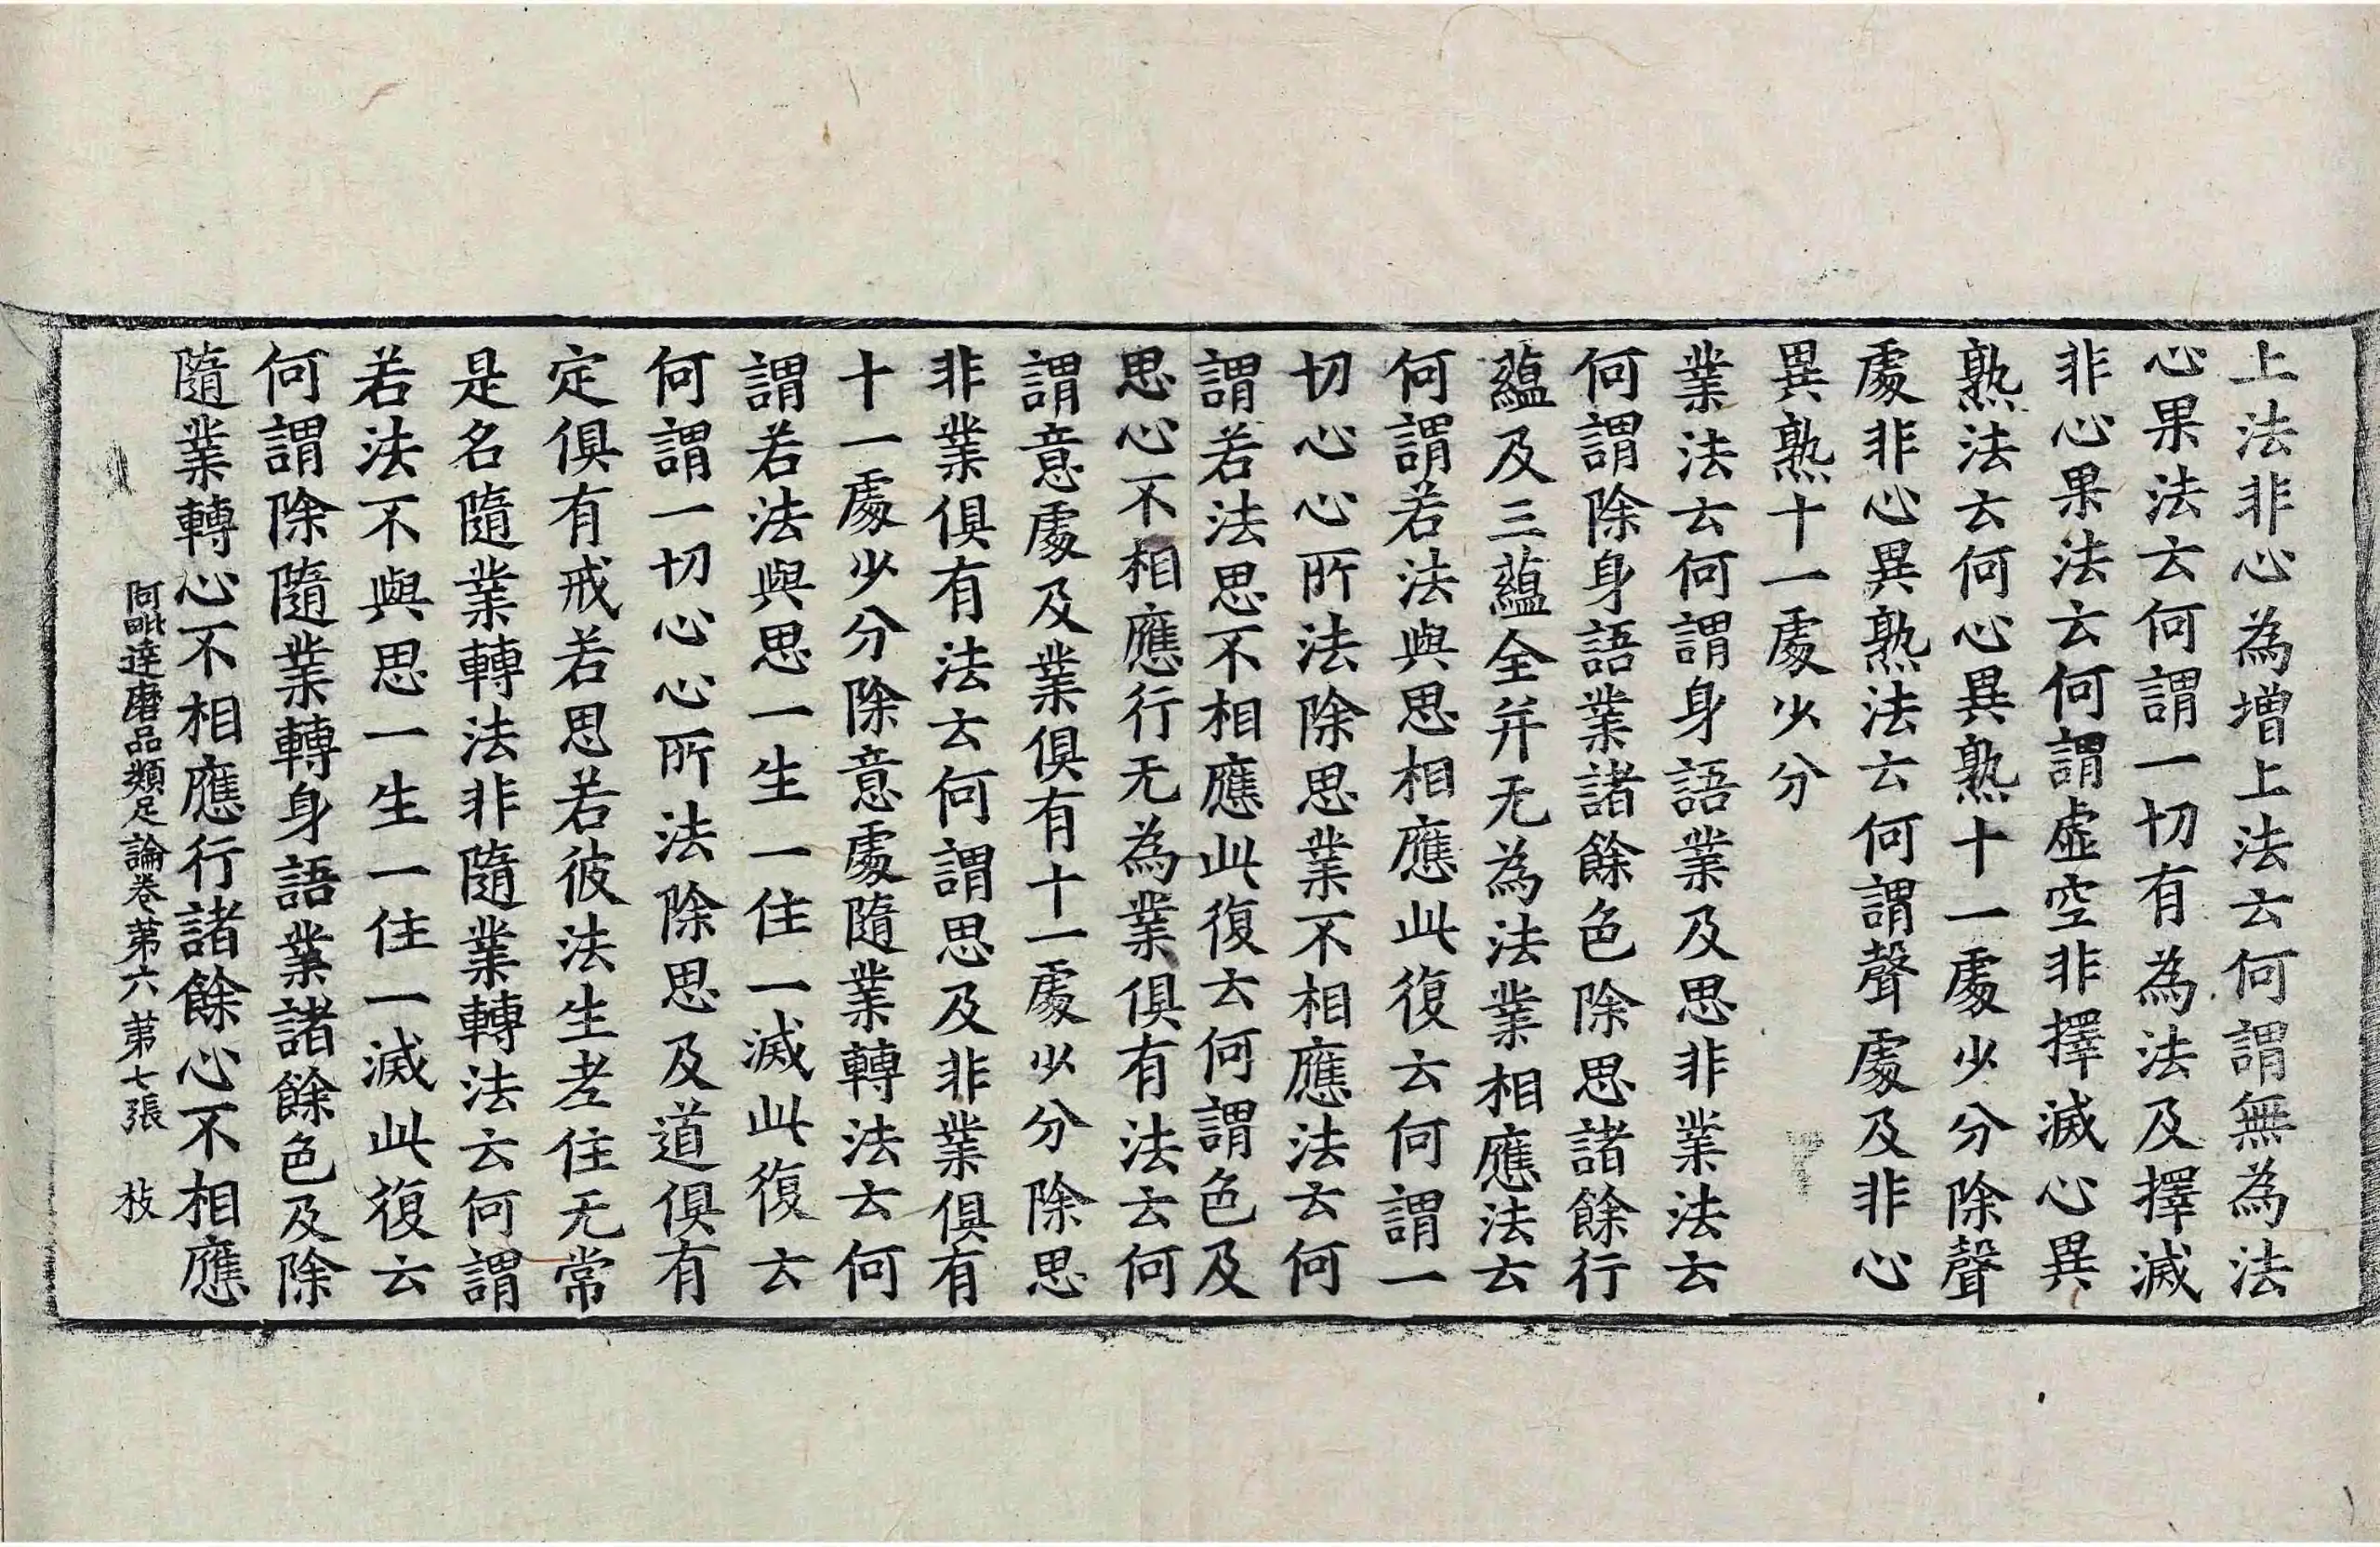 上法非心為增上法云何謂無為法
心果法云何謂一切有為法及擇滅
非心果法云何謂虛空非擇滅心異
熟法云何心異熟十一處少分除聲
處非心異熟法云何謂聲處及非心
異熟十一處少分
業法云何謂身語業及思非業法云
何謂除身語業諸餘色除思諸餘行
蘊及三蘊全并无為法業相應法云
何謂若法與思相應此復云何謂一
切心心所法除思業不相應法云何
謂若法思不相應此復云何謂色及
思心不相應行无為業俱有法云何
謂意處及業俱有十一處少分除思
非業俱有法云何謂思及非業俱有
十一處少分除意處隨業轉法云何
謂若法與思一生一住一滅此復云
何謂一切心心所法除思及道俱有
定俱有戒若思若彼法生老住无常
是名隨業轉法非隨業轉法云何謂
若法不與思一生一住一滅此復云
何謂除隨業轉身語業諸餘色及除
隨業轉心不相應行諸餘心不相應
阿毗達磨品類足論卷第六 第七張 枝